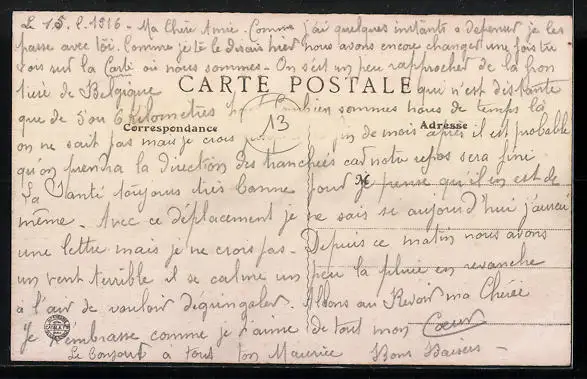 Le 15. 2. 1916 - Ma Chère Amie. Comme j'ai quelques instants a depenser je les
passe avec toi. Comme je te le disais hier nous avons encore changer une fois tu
vois sur la Carte où nous sommes - On s'est un peu rapprocher de la fron
tière de Belgique qui n'est distante
CARTE POSTALE
que de 5 ou 6 kilomètres Combien sommes nous de temps là
13
Correspondance
Adresse
on ne sait pas mais je crois fin de mois après il est probable
qu'on prendra la direction des tranchées car notre repos sera fini
La Santé toujours très bonne pour je pense qu'il en est de
même - Avec ce déplacement je ne sais si aujourd'hui j'aurai
une lettre mais je ne crois pas - Depuis ce matin nous avons
un vent terrible il se calme un peu la pluie en revanche
a l'air de vouloir dégringoler. Allons au Revoir ma Chérie
Je t'embrasse comme je t'aime de tout mon Coeur
Le bonjour à tous ton Maurice Bons Baisers -